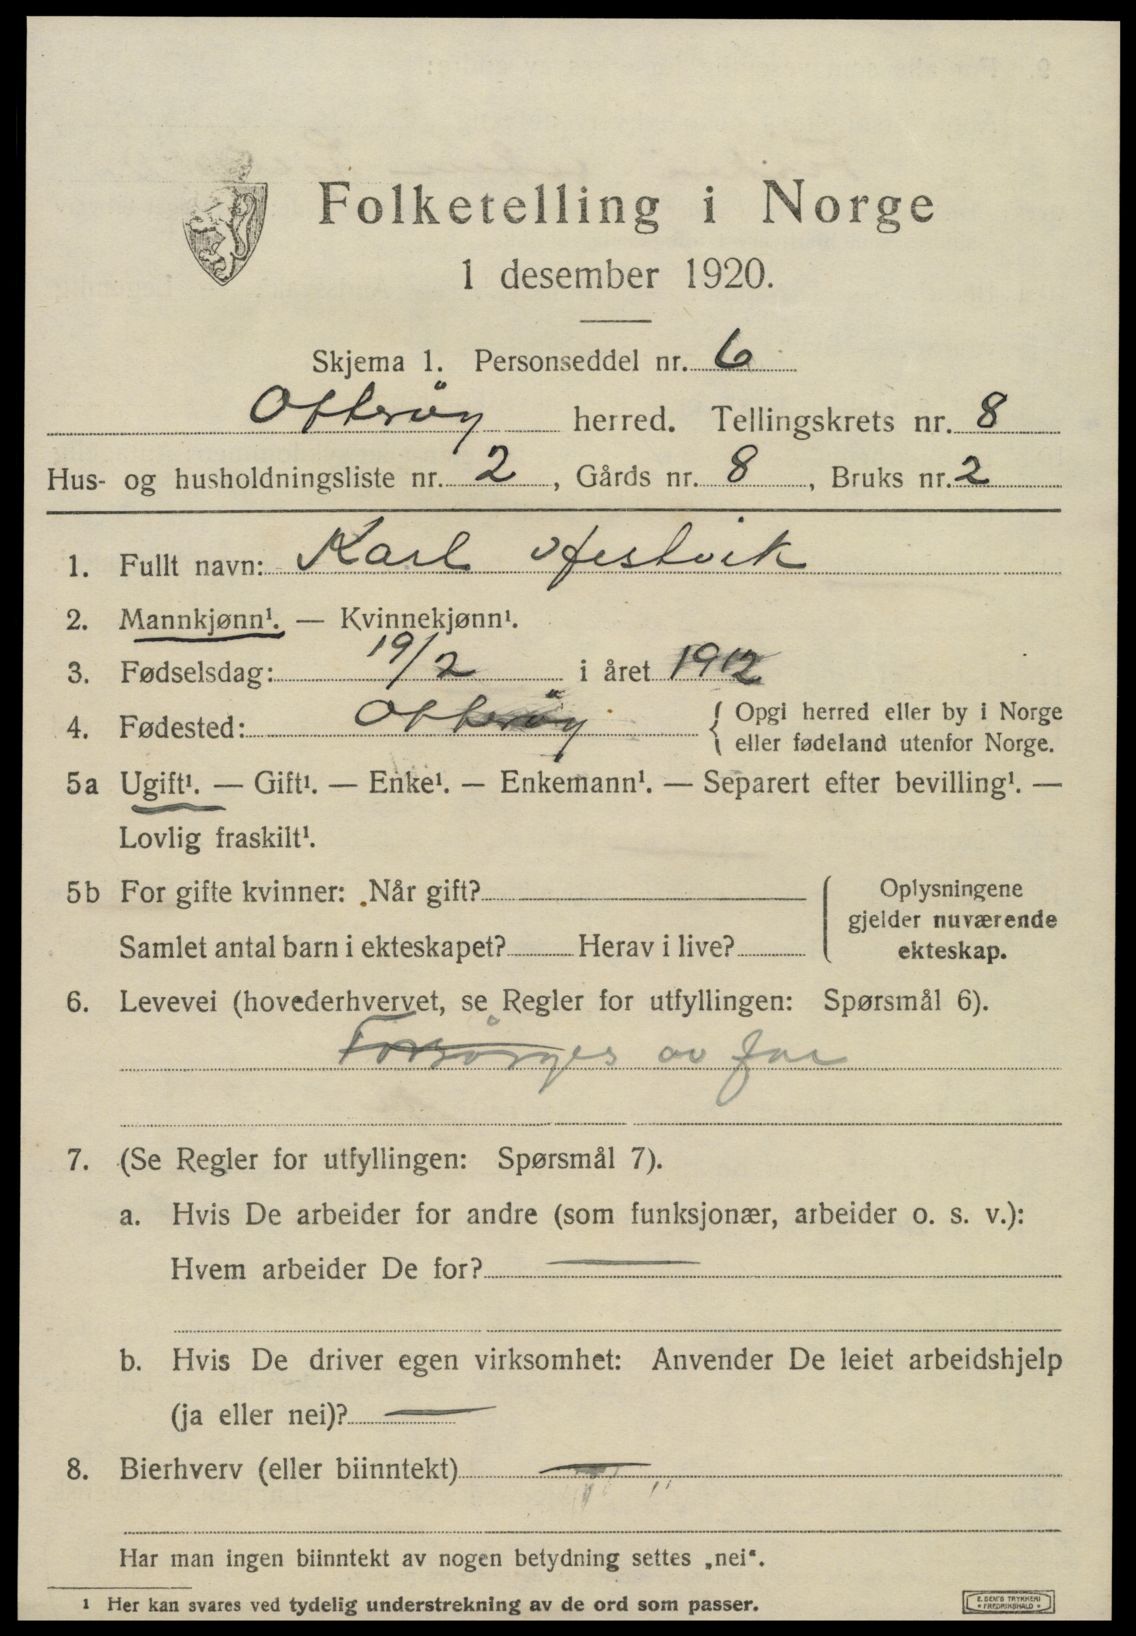 Folketelling i Norge
1 desember 1920.
Skjema 1. Personseddel nr. 6
Otterøy herred. Tellingskrets nr. 8
Hus- og husholdningsliste nr. 2, Gårds nr. 8, Bruks nr. 2
1. Fullt navn: Karl
2. Mannkjønn¹. — Kvinnekjønn¹.
3. Fødselsdag: 19/2 i året 1912
4. Fødested: Otterøy { Opgi herred eller by i Norge
eller fødeland utenfor Norge.
5a Ugift¹. — Gift¹. — Enke¹. — Enkemann¹. — Separert efter bevilling¹. —
Lovlig fraskilt¹.
5b For gifte kvinner: Når gift?
Samlet antal barn i ekteskapet? Herav i live?
Oplysningene
gjelder nuværende
ekteskap.
6. Levevei (hovederhvervet, se Regler for utfyllingen: Spørsmål 6).
Forsørges av far
7. (Se Regler for utfyllingen: Spørsmål 7).
a. Hvis De arbeider for andre (som funksjonær, arbeider o. s. v.):
Hvem arbeider De for? —
b. Hvis De driver egen virksomhet: Anvender De leiet arbeidshjelp
(ja eller nei)? —
8. Bierhverv (eller biinntekt) —
Har man ingen biinntekt av nogen betydning settes „nei“.
¹ Her kan svares ved tydelig understrekning av de ord som passer.
E. SEM'S TRYKKERI
FREDRIKSHALD